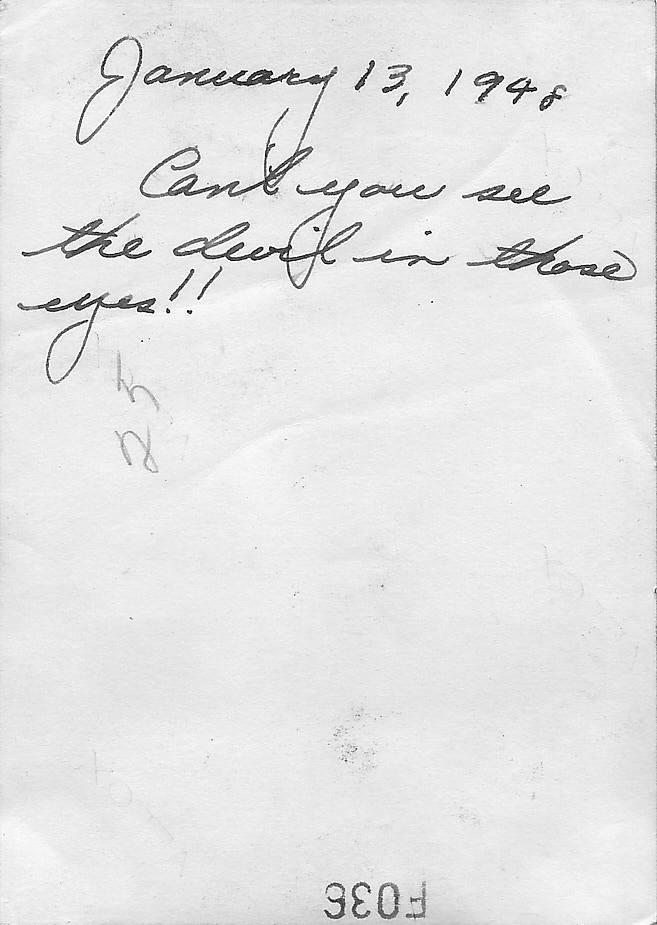 January 13, 1948
Can't you see
the devil in those
eyes!!
25
F036